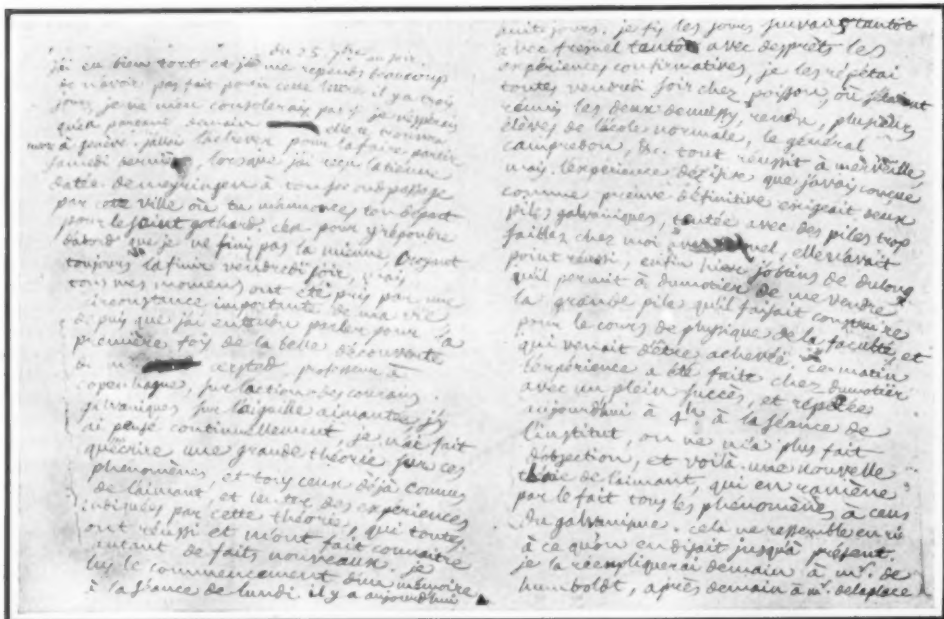 du 25 7bre au soir.
j'ai eu bien tort et je me repends beaucoup
de n'avoir pas fait partir cette lettre il y a trois
jours, je ne m'en consolerais pas si je n'esperais
qu'en partant demain elle te trouvera
à genève. j'allais l'achever pour la faire partir
samedi dernier, lorsque j'ai reçu la tienne
datée de meyringen à ton second passage
par cette ville où tu m'annonces ton départ
pour le saint gothard. c'est pour y répondre
dabord que je ne finis pas la mienne, croyant
toujours la finir vendredi soir, mais
tous mes momens ont été pris par une
circonstance importante de ma vie
depuis que j'ai entendu parler pour la
première fois de la belle découverte
de m. oersted, professeur à
copenhague, sur l'action des courans
galvaniques sur l'aiguille aimantée, j'y
ai pensé continuellement, je n'ai fait
qu'écrire une grande théorie sur ces
phénomènes, et tous ceux déjà connus
de l'aimant, et tenter des expériences
indiquées par cette théorie, qui toutes
ont réussi et m'ont fait connaitre
autant de faits nouveaux. je
lus le commencement d'un mémoire
à la séance de lundi. il y a aujourd'hui
huit jours. je fis les jours suivans tantôt
avec fresnel tantôt avec desprets les
expériences confirmatives, je les répétai
toutes vendredi soir chez poisson, où s'étaient
réunis les deux demussy, rendu, plusieurs
élèves de l'école normale, le général
campredon, &c. tout réussit à merveille,
mais l'expérience décisive que j'avais conçue
comme preuve définitive exigeait deux
piles galvaniques, tentée avec des piles trop
faibles chez moi avec fresnel, elle n'avait
point réussi, enfin hier j'obtins de dulong
qu'il permit à dumotier de me vendre
la grande pile qu'il faisait construire
pour le cours de physique de la faculté, et
qui venait d'être achevée. ce matin
l'expérience a été faite chez dumotier
avec un plein succès, et répétée
aujourd'hui à 4h. à la séance de
l'institut, on ne m'a plus fait
d'objection, et voilà une nouvelle
théorie de l'aimant, qui en ramène
par le fait tous les phénomènes à ceus
du galvanisme. cela ne ressemble en rien
à ce qu'on en disait jusqu'à présent.
je la réexpliquerai demain à mr. de
humboldt, après demain à mr. delaplace